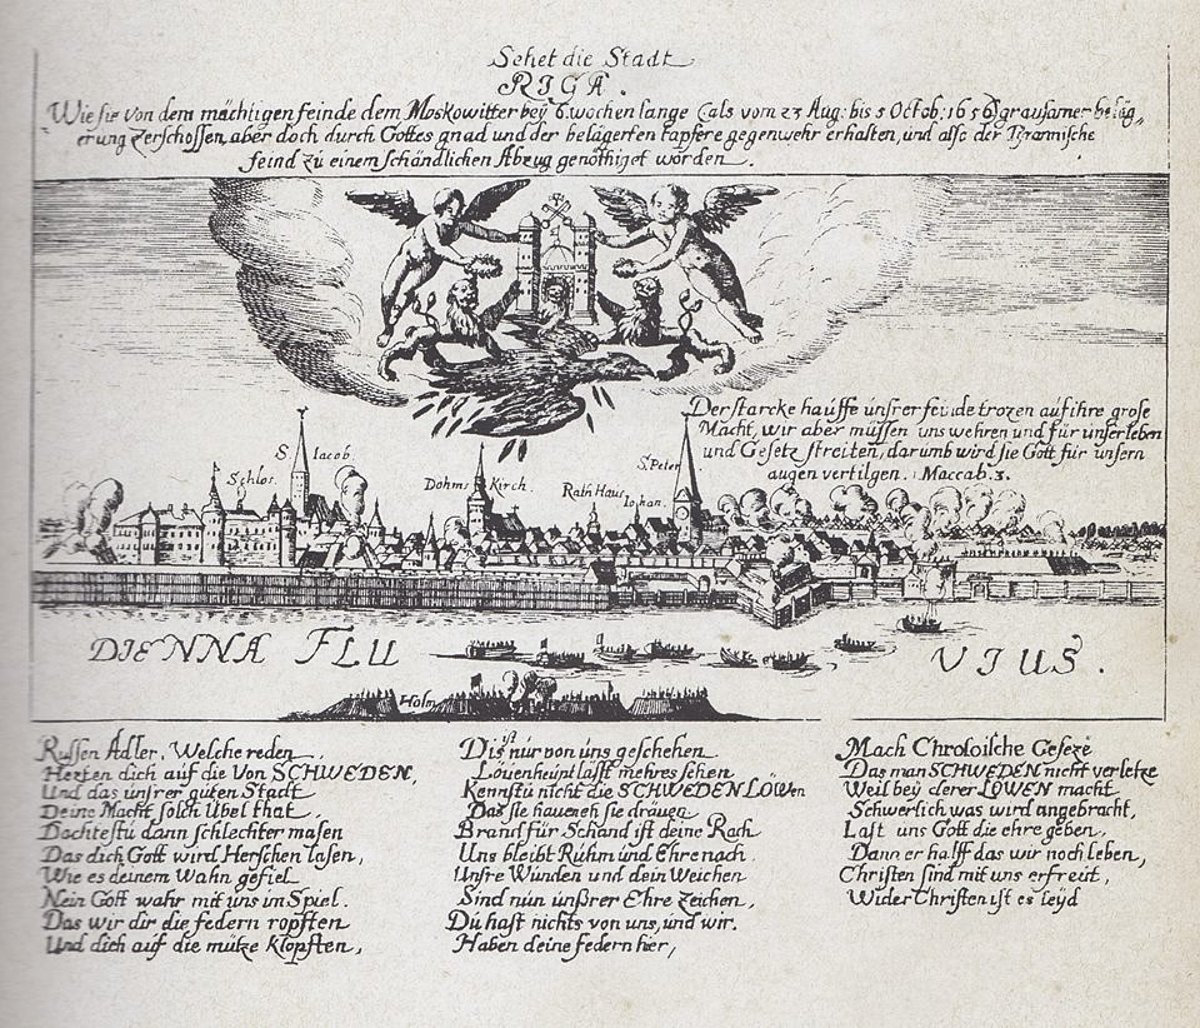 Sehet die Stadt
RIGA.
Wie sie von dem mächtigen feinde dem Moskowitter bey 6. wochen lange (als vom 23 Aug: bis 5 Octob: 1656) grausamer beläg„
erung zerschossen, aber doch durch Gottes gnad und der belägerten tapfere gegenwehr erhalten, und also der Tyrannische
feind zu einem schändlichen Abzug genöthiget worden.
Der starcke hauffe unsrer feinde trozen auf ihre grose
Macht, wir aber müssen uns wehren und für unser leben
und Gesetz streiten, darumb wird sie Gott für unsern
augen vertilgen. Maccab. 3.
S. Iacob.
Schlos.
Dohms Kirch.
Rath Haus
Iohan.
S. Peter
DIENNA FLU VIUS.
Holm
Russen Adler, Welche reden
Hezten dich auf die Von SCHWEDEN,
Und das unsrer guten Stadt
Deine Macht solch Übel that,
Dachtestu dann schlechter masen
Das dich Gott wird Herschen lasen,
Wie es deinem Wahn gefiel
Nein Gott wahr mit uns im Spiel.
Das wir dir die federn ropften
Und dich auf die mütze klopften,
Dis ist nur von uns geschehen
Löuenheupt lässt mehres sehen
Kennstu nicht die SCHWEDEN LÖWen
Das sie haueneh sie dräuen
Brand für Schand ist deine Rach
Uns bleibt Ruhm und Ehre nach.
Unsre Wunden und dein Weichen
Sind nun unßrer Ehre Zeichen,
Du hast nichts von uns, und wir.
Haben deine federn hier,
Mach Geseze
Das man SCHWEDEN nicht verletze
Weil bey derer LÖWEN macht
Schwerlich was wird angebracht,
Last uns Gott die ehre geben,
Dann er halff das wir noch leben,
Christen sind mit uns erfreut,
Wider Christen ist es leyd